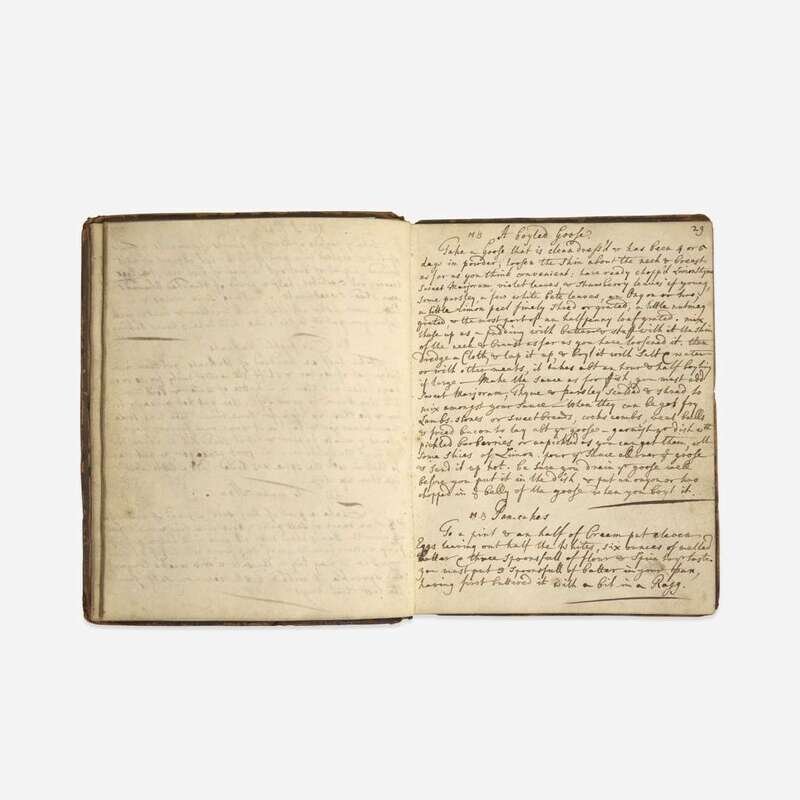 29
MB A boyled Goose
Take a Goose that is clean dress'd & has been 4 or 5
days in powder; loosen the skin about the neck & breast
as far as you think convenient; have ready chopp'd
Sweet Marjoram, violet leaves & Strawberry leaves if young,
Some parsley, a few white bete leaves, an Onyon or two;
a little Limon peel finely Shred or grated, a little nutmeg
grated & the most part of an halfpenny loaf grated. mix
these up as a pudding with butter & stuff with it the skin
of the neck & breast as far as you have loosen'd it. then
dredge a Cloth & lap it up & boyl it with Salt & water
or with other meats, it takes abt an hour & half boyling
if large — Make the Sauce as for fish, you must add
Sweet Marjoram, Thyme & parsley Scalded & Shread to
mix amongst your Sauce — When they can be got fry
Lambs-stones or Sweetbreads, cockscombs, veal balls
& fryed bacon to lay abt ye goose — garnish yr dish wth
pickled barberries or unpickled as you can get them, with
Some Slices of Limon. pour ye Sauce all over ye goose
& Send it up hot. be sure you drain ye goose well
before you put it in the dish & put an onyon or two
chopped in ye belly of the goose when you boyl it.
MB Pancakes
To a pint & an half of Cream put eleven
Eggs leaving out half the Whites, six ounces of melted
butter & three Spoonsfull of flour & Spice to yr taste.
you must put 2 Spoonsfull of batter in your pan,
having first buttered it with a bit in a Ragg.